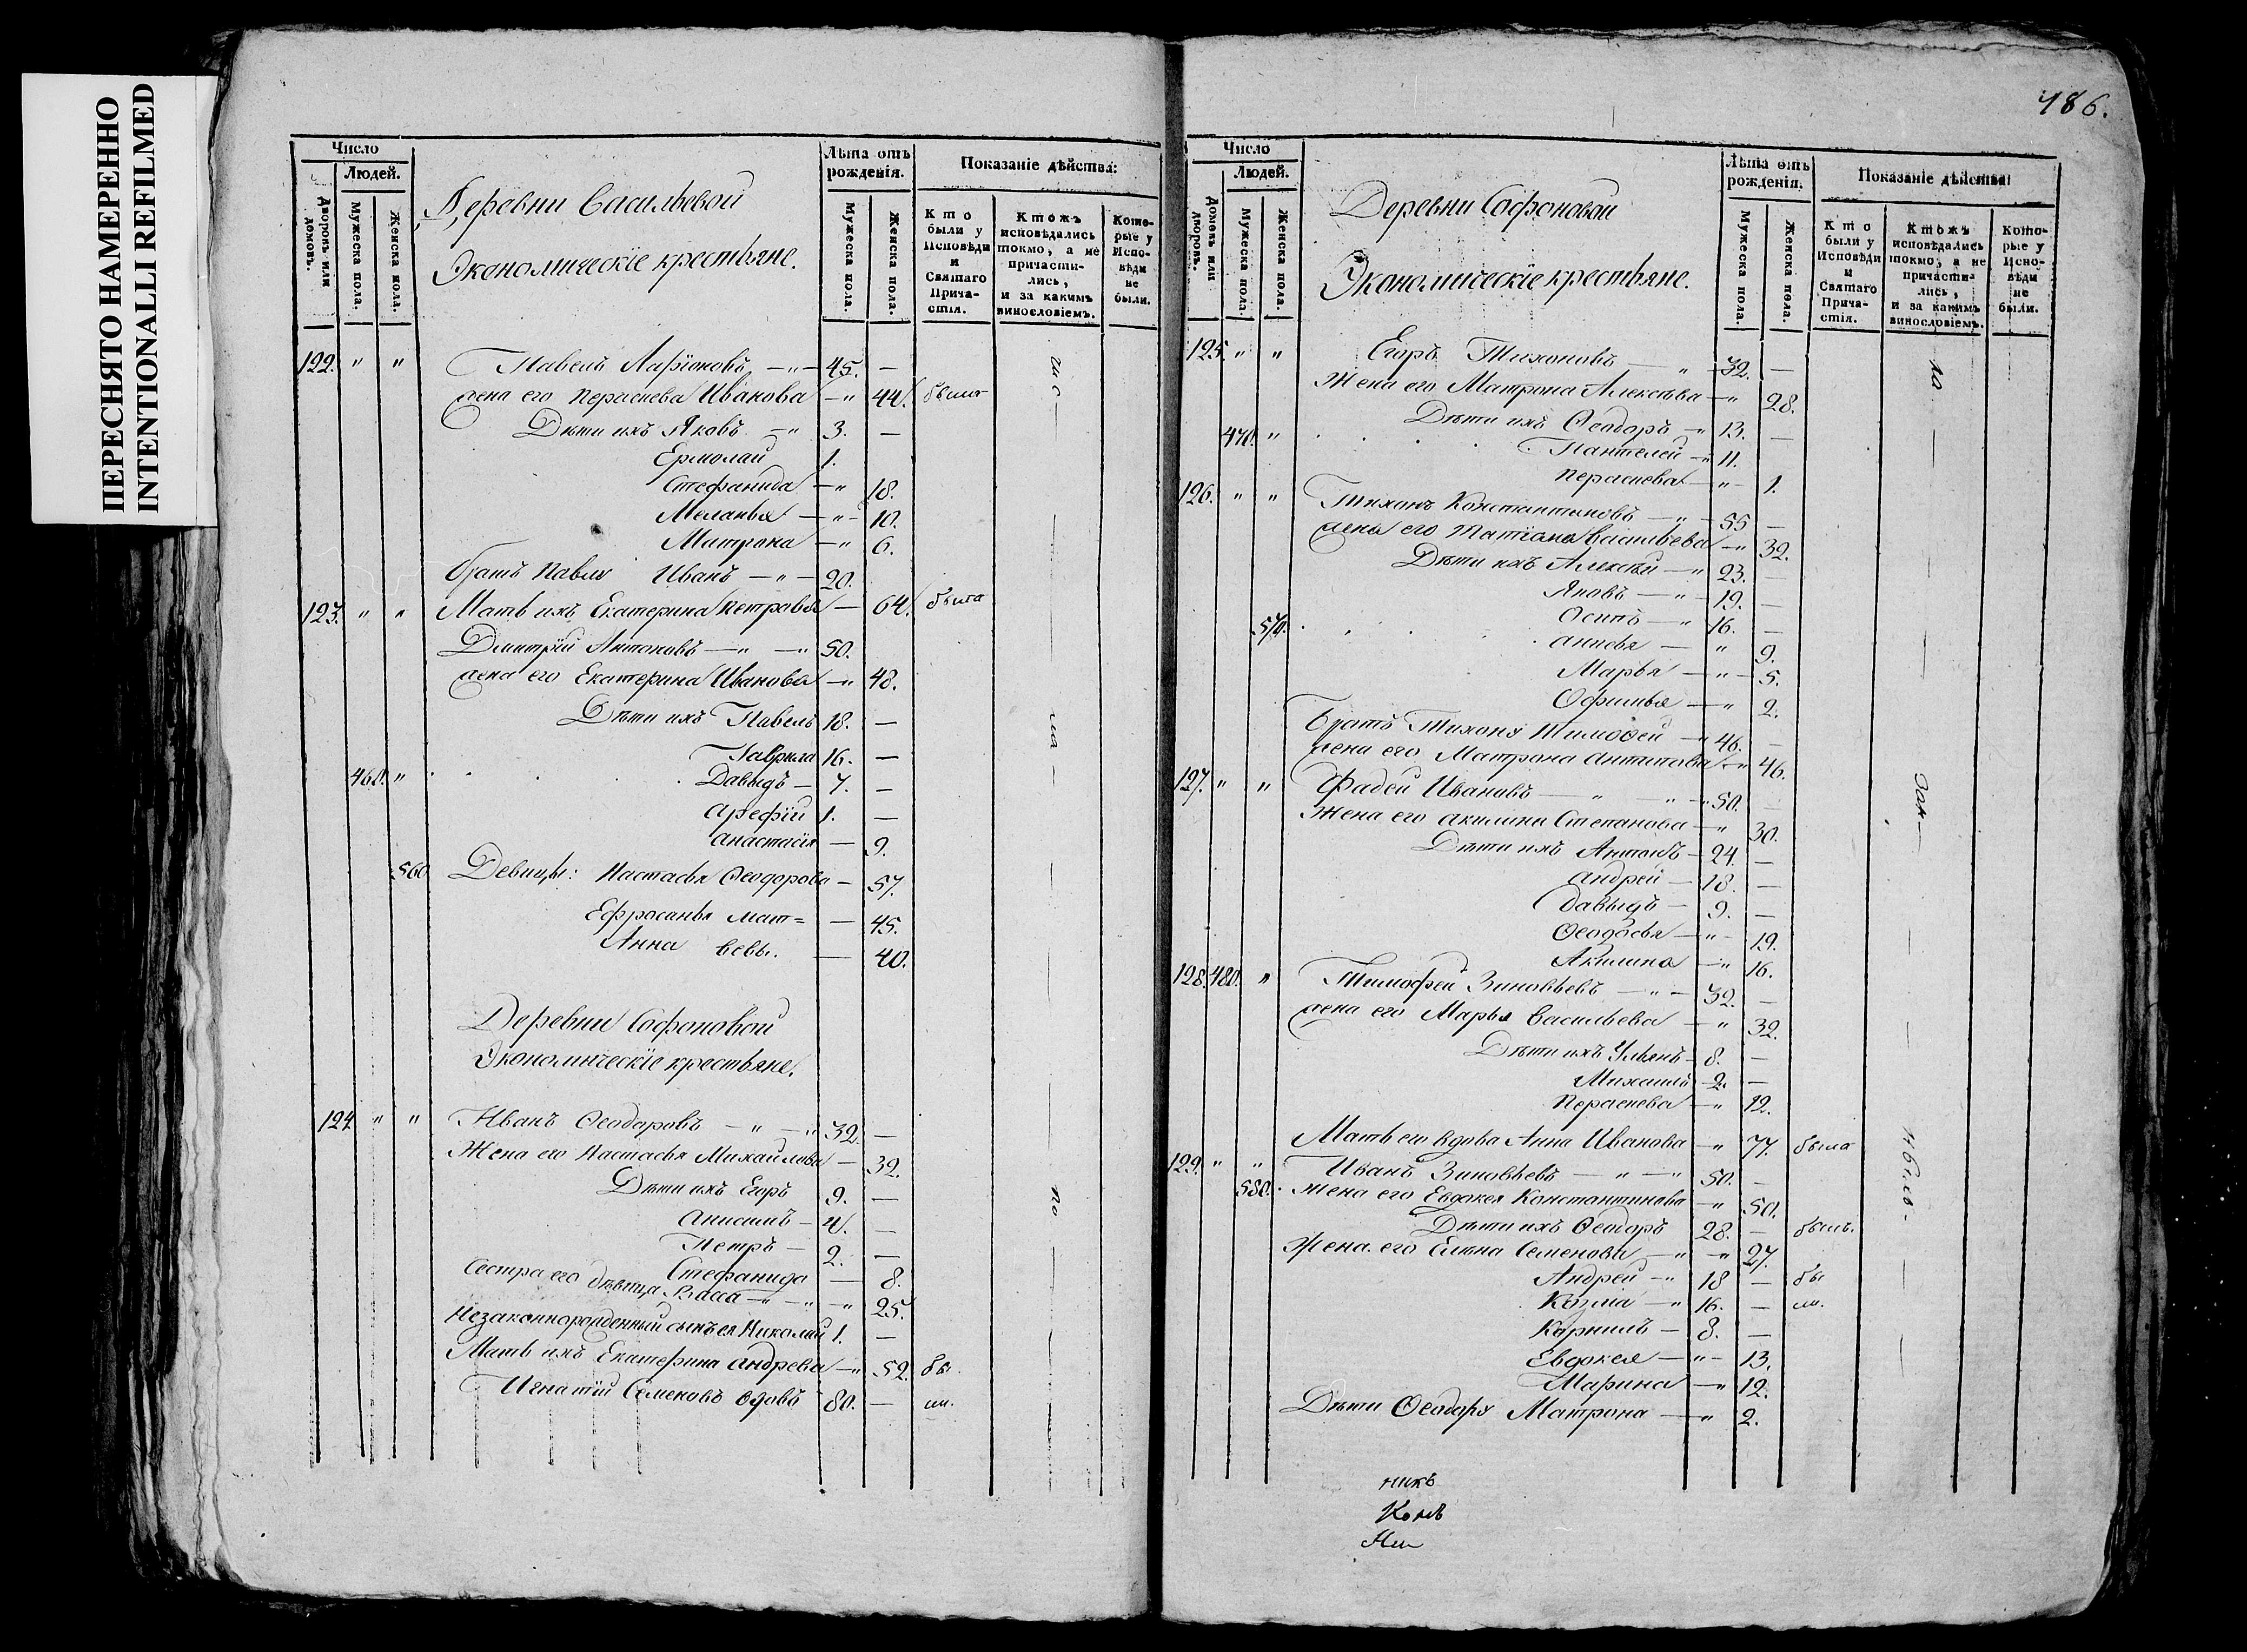 ПЕРЕСНЯТО НАМЕРЕННО
INTENTIONALLI REFILMED
Число
Людей.
Дворовъ или домовъ.
Мужеска пола.
Женска пола.
Деревни Васильевой
Экономическіе крестьяне.
Лѣта отъ рожденія.
Мужеска пола.
Женска пола.
Показаніе дѣйства:
Кто были у Исповѣди и Святаго Причастія.
Ктожъ исповѣдались токмо, а не причастились, и за какимъ винословіемъ.
Которые у Исповѣди не были.
122. " " Павелъ Ларіоновъ — " — 45. —
жена его Парасковья Иванова — " 44. была
Дѣти ихъ Яковъ — " 3. —
Ермолай 1.
Стефанида — " 18.
Меланья — " — 10.
Матрона — " 6.
братъ Павла Иванъ — " — 20.
Мать ихъ Екатерина Петрова — 64. была
123. " " Дмитрій Антоновъ — " — " 50.
жена его Екатерина Иванова — " 48.
Дѣти ихъ Павелъ 18. —
Гаврила 16. —
460. " Давыдъ — 7. —
Арефій 1. —
Анастасія — 9.
560. Девицы: Настасья Ѳеодорова — 57.
Ефросанья Мат= — 45.
Анна вевы. — 40.
Деревни Софоновой
Экономическіе крестьяне.
124. " " Иванъ Ѳеодоровъ — " — " 32. —
Жена его Настасья Михайлова — 32.
Дѣти ихъ Егоръ 9. —
Анисимъ — 4. —
Петръ — 2. —
Стефанида — 8.
Сестра его дѣвица Васса — " — " — " 25.
Незаконнорожденный сынъ ея Николай 1. —
Мать ихъ Екатерина Андреева — " 52. бы
Игнатій Семеновъ вдовъ 80. — ли.
186.
Число
Людей.
Домовъ или дворовъ.
Мужеска пола.
Женска пола.
Деревни Софоновой
Экономическіе крестьяне.
Лѣта отъ рожденія.
Мужеска пола.
Женска пола.
Показаніе дѣйства:
Кто были у Исповѣди и Святаго Причастія.
Ктожъ исповѣдались токмо, а не причастились, и за какимъ винословіемъ.
Которые у Исповѣди не были.
125. " " Егоръ Тихоновъ — " — 32. —
Жена его Матрона Алексѣева — " 28.
Дѣти ихъ Ѳеодоръ — " 13. —
470. " Пантелей — " 11.
Парасковья — " — 1.
126. " " Тихонъ Константиновъ — " — 55 —
жена его Татіана Васильева — " 32.
Дѣти ихъ Алексѣй — " 23. —
Яковъ — " — 19. —
Осипъ — " 16. —
570. Анисья — " 9.
Марья — " — 5.
Офимья — " 2.
Братъ Тихона Тимоѳей — " 46. —
жена его Матрона Антипова — " 46.
127. " " Фадей Ивановъ — " — " — " 50. —
Жена его Акилина Степанова — " 30.
Дѣти ихъ Антонъ — 24. —
Андрей — 18. —
Давыдъ — 9. —
Ѳеодосья — " — 19.
Акилина — " 16.
128. 480. " Тимофей Зиновьевъ — " — 32. —
жена его Марья Васильева — " 32.
Дѣти ихъ Ульянъ — 8. —
Михаилъ — 2. —
Парасковья — " 12.
Мать его вдова Анна Иванова — " 77. была
129. " " Иванъ Зиновьевъ — " — " 50. —
580. Жена его Евдокея Константинова — " 50.
Дѣти ихъ Ѳеодоръ 28. — былъ.
Жена его Елена Семенова — " — " 27.
Андрей — " 18 — бы
Козма — " 16. — ли.
Корнилъ — 8. —
Евдокея — " — 13.
Марина — " 12.
Дѣти Ѳеодора Матрона — " 2.